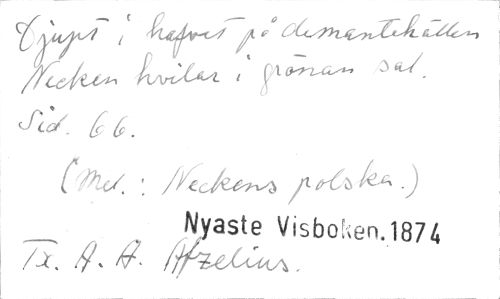 Djupt i hafvet på demantehällen
Necken hvilar i grönan sal.
Sid. 66.
(Mel.: Neckens polska.)
Nyaste Visboken. 1874
Tx. A. A. Afzelius.